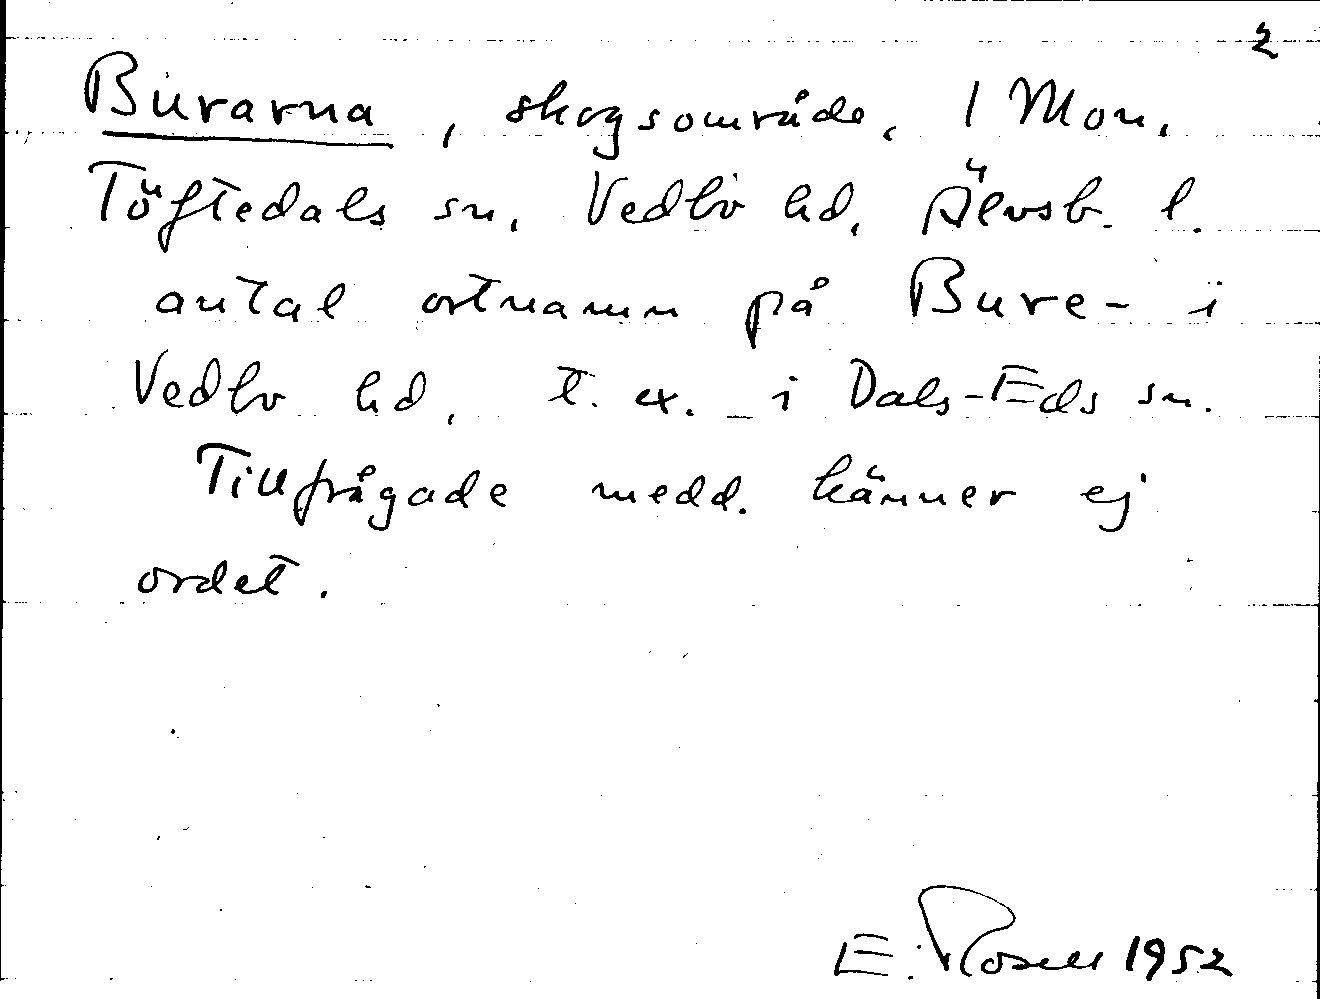 2
Burarna, skogsområde, 1 Mon,
Töftedals sn, Vedbo hd, Älvsb. l.
antal ortnamn på Bure- i
Vedbo hd, t. ex. i Dals-Eds sn.
Tillfrågade medd. känner ej
ordet.
E. Rosell 1952